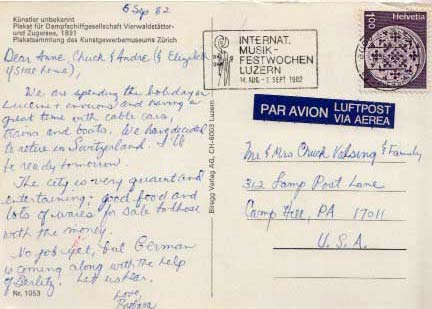 6 Sep 82
Künstler unbekannt
Plakat für Dampfschiffgesellschaft Vierwaldstätter-
und Zugersee, 1891
Plakatsammlung des Kunstgewerbemuseums Zürich
Dear Anne, Chuck & Andre (& Elizabeth
if still home),
We are spending the holiday in
Lucerne + environs and having a
great time with cable cars,
trains and boats. We have decided
to retire in Switzerland. I'll
be ready tomorrow.
The city is very quaint and
entertaining; good food and
lots of wares for sale to those
with the money.
No job yet, but German
is coming along with the help
of Berlitz. Let us hear.
Love,
Barbara
Nr. 1053
Biregg Verlag AG, CH-6003 Luzern
INTERNAT.
MUSIK-
FESTWOCHEN
LUZERN
14. AUG. - 7. SEPT 1982
100
Helvetia
PAR AVION
LUFTPOST
VIA AEREA
Mr & Mrs Chuck & Family
312 Lamp Post Lane
Camp Hill, PA 17011
U.S.A.